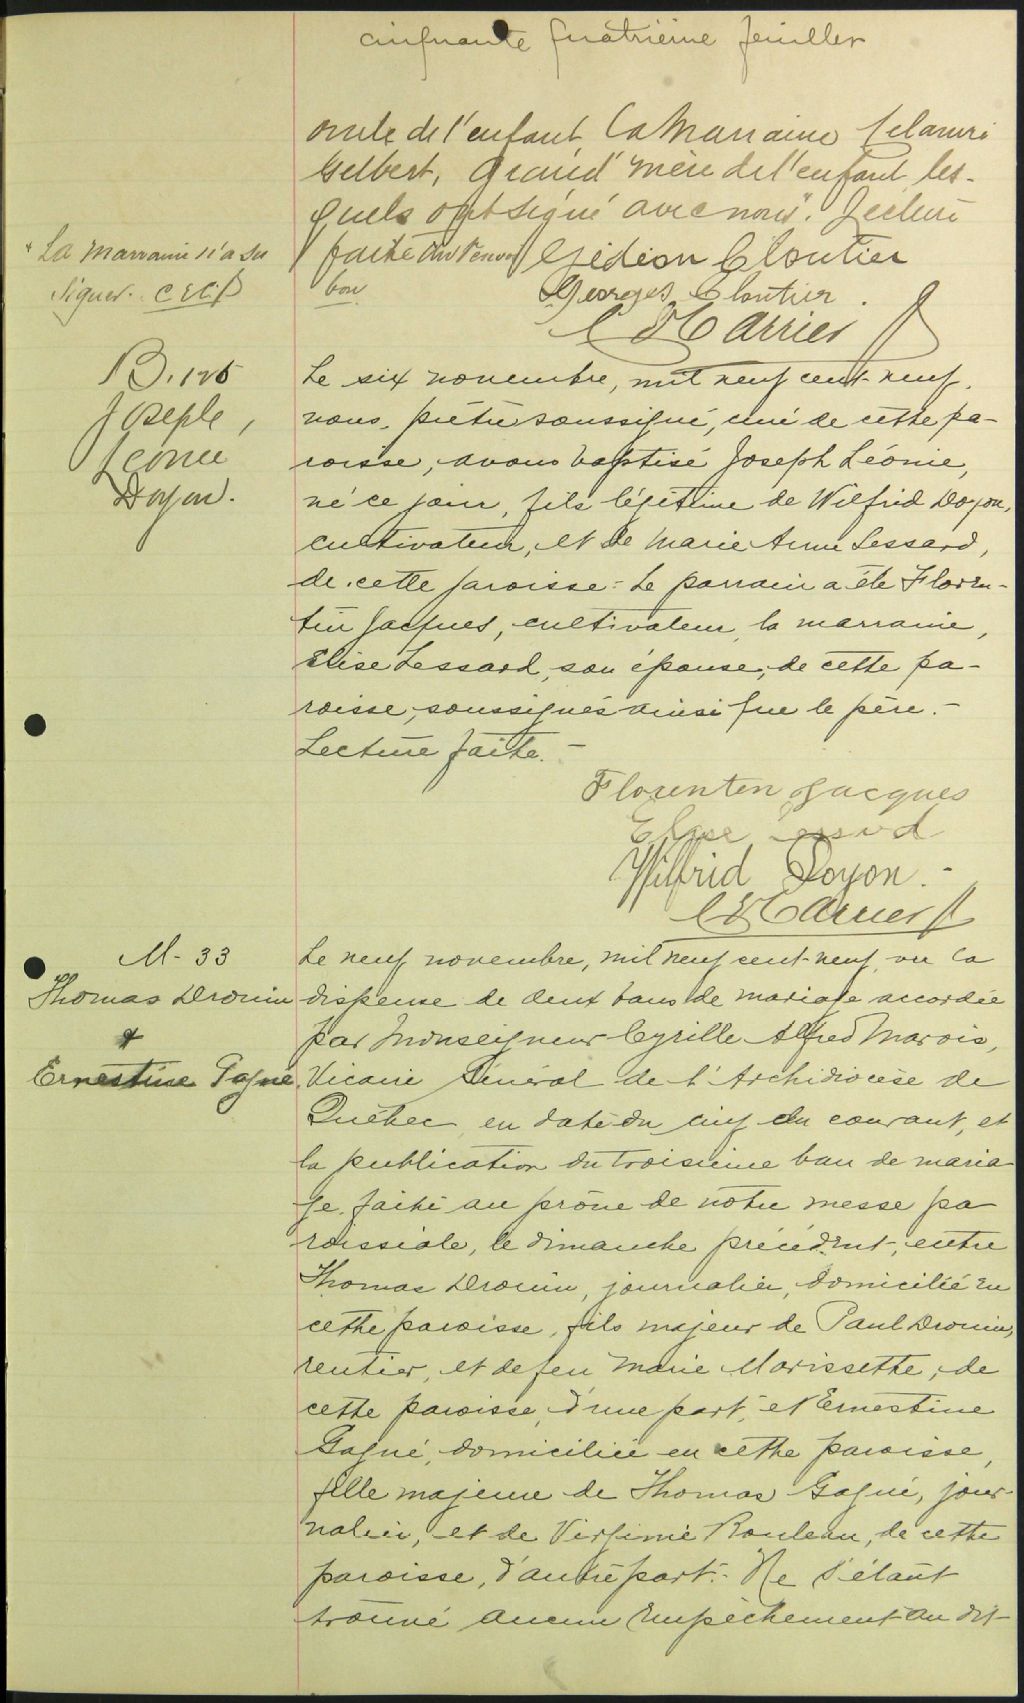 cinquante quatrième feuillet
oncle de l'enfant, la Marraine
Gilbert, Grand' mère de l'enfant les-
quels ont signé avec nous. Lecture
+ La Marraine n'a su
signer. C E C P
faite
bon
Gédéon Cloutier
Georges Cloutier.
C E Carrier P
B. 125
Joseph,
Léonie
Doyon.
Le six novembre, mil neuf cent-neuf.
nous, prêtre soussigné, curé de cette pa-
roisse, avons baptisé Joseph Léonie,
né ce jour, fils légitime de Wilfrid Doyon,
cultivateur, et de Marie Anne Lessard,
de cette paroisse.- Le parrain a été Floren-
tin Jacques, cultivateur, la marraine,
Elise Lessard, son épouse, de cette pa-
roisse, soussignés ainsi que le père.-
Lecture faite.-
Florenten Jacques
Elise
Wilfrid Doyon.-
C E Carrier P
M- 33
Thomas Drouin
&
Ernestine Gagné
Le neuf novembre, mil neuf cent-neuf, vu la
dispense de deux bans de mariage accordée
par Monseigneur Cyrille Alfred Marois,
Vicaire Général de l'Archidiocèse de
Québec, en date du cinq du courant, et
la publication du troisième ban de maria-
ge faite au prône de notre messe pa
roissiale, le dimanche précédent, entre
Thomas Drouin, journalier, domicilié en
cette paroisse, fils majeur de Paul Drouin,
rentier, et de feu Marie Morissette, de
cette paroisse, d'une part, et Ernestine
Gagné, domiciliée en cette paroisse,
fille majeure de Thomas Gagné, jour-
nalier, et de Virginie Rouleau, de cette
paroisse, d'autre part.- Ne s'étant
trouvé aucun empêchement au dit